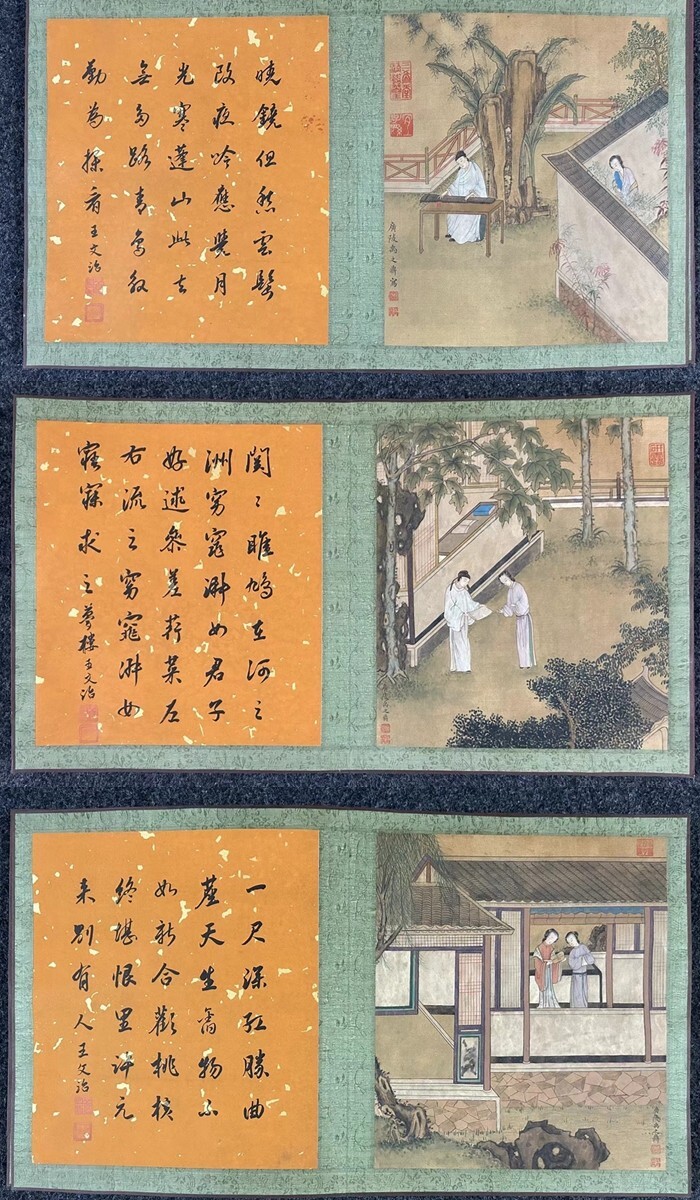 曉鏡但愁雲鬢
改夜吟應覺月
光寒蓬山此去
無多路青鳥殷
勤為探看 王文治
廣陵禹之鼎寫
関〻雎鳩在河之
洲窈窕淑女君子
好逑參差荇菜左
右流之窈窕淑女
寤寐求之 夢樓王文治
一尺深紅勝曲
塵天生舊物不
如新合歡桃核
終堪恨里許元
來別有人 王文治
廣陵禹之鼎